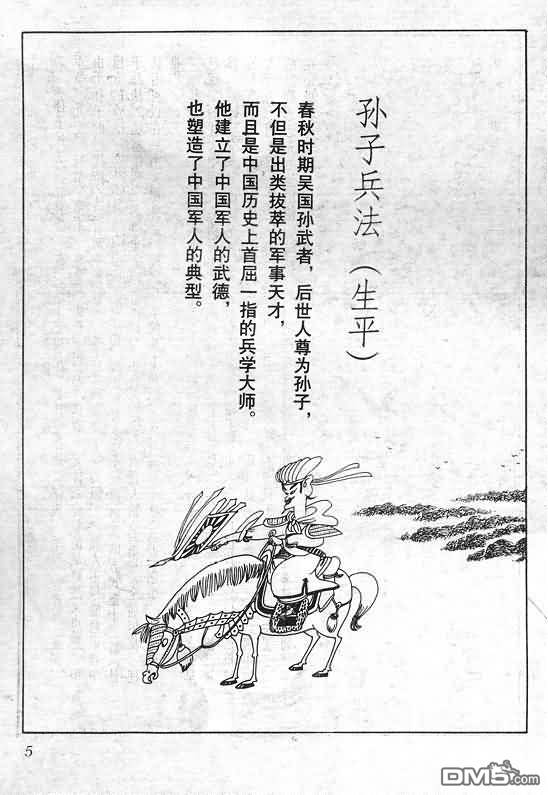 孙子兵法（生平）
春秋时期吴国孙武者，后世人尊为孙子，
不但是出类拔萃的军事天才，
而且是中国历史上首屈一指的兵学大师。
他建立了中国军人的武德，
也塑造了中国军人的典型。
5
DM5.com